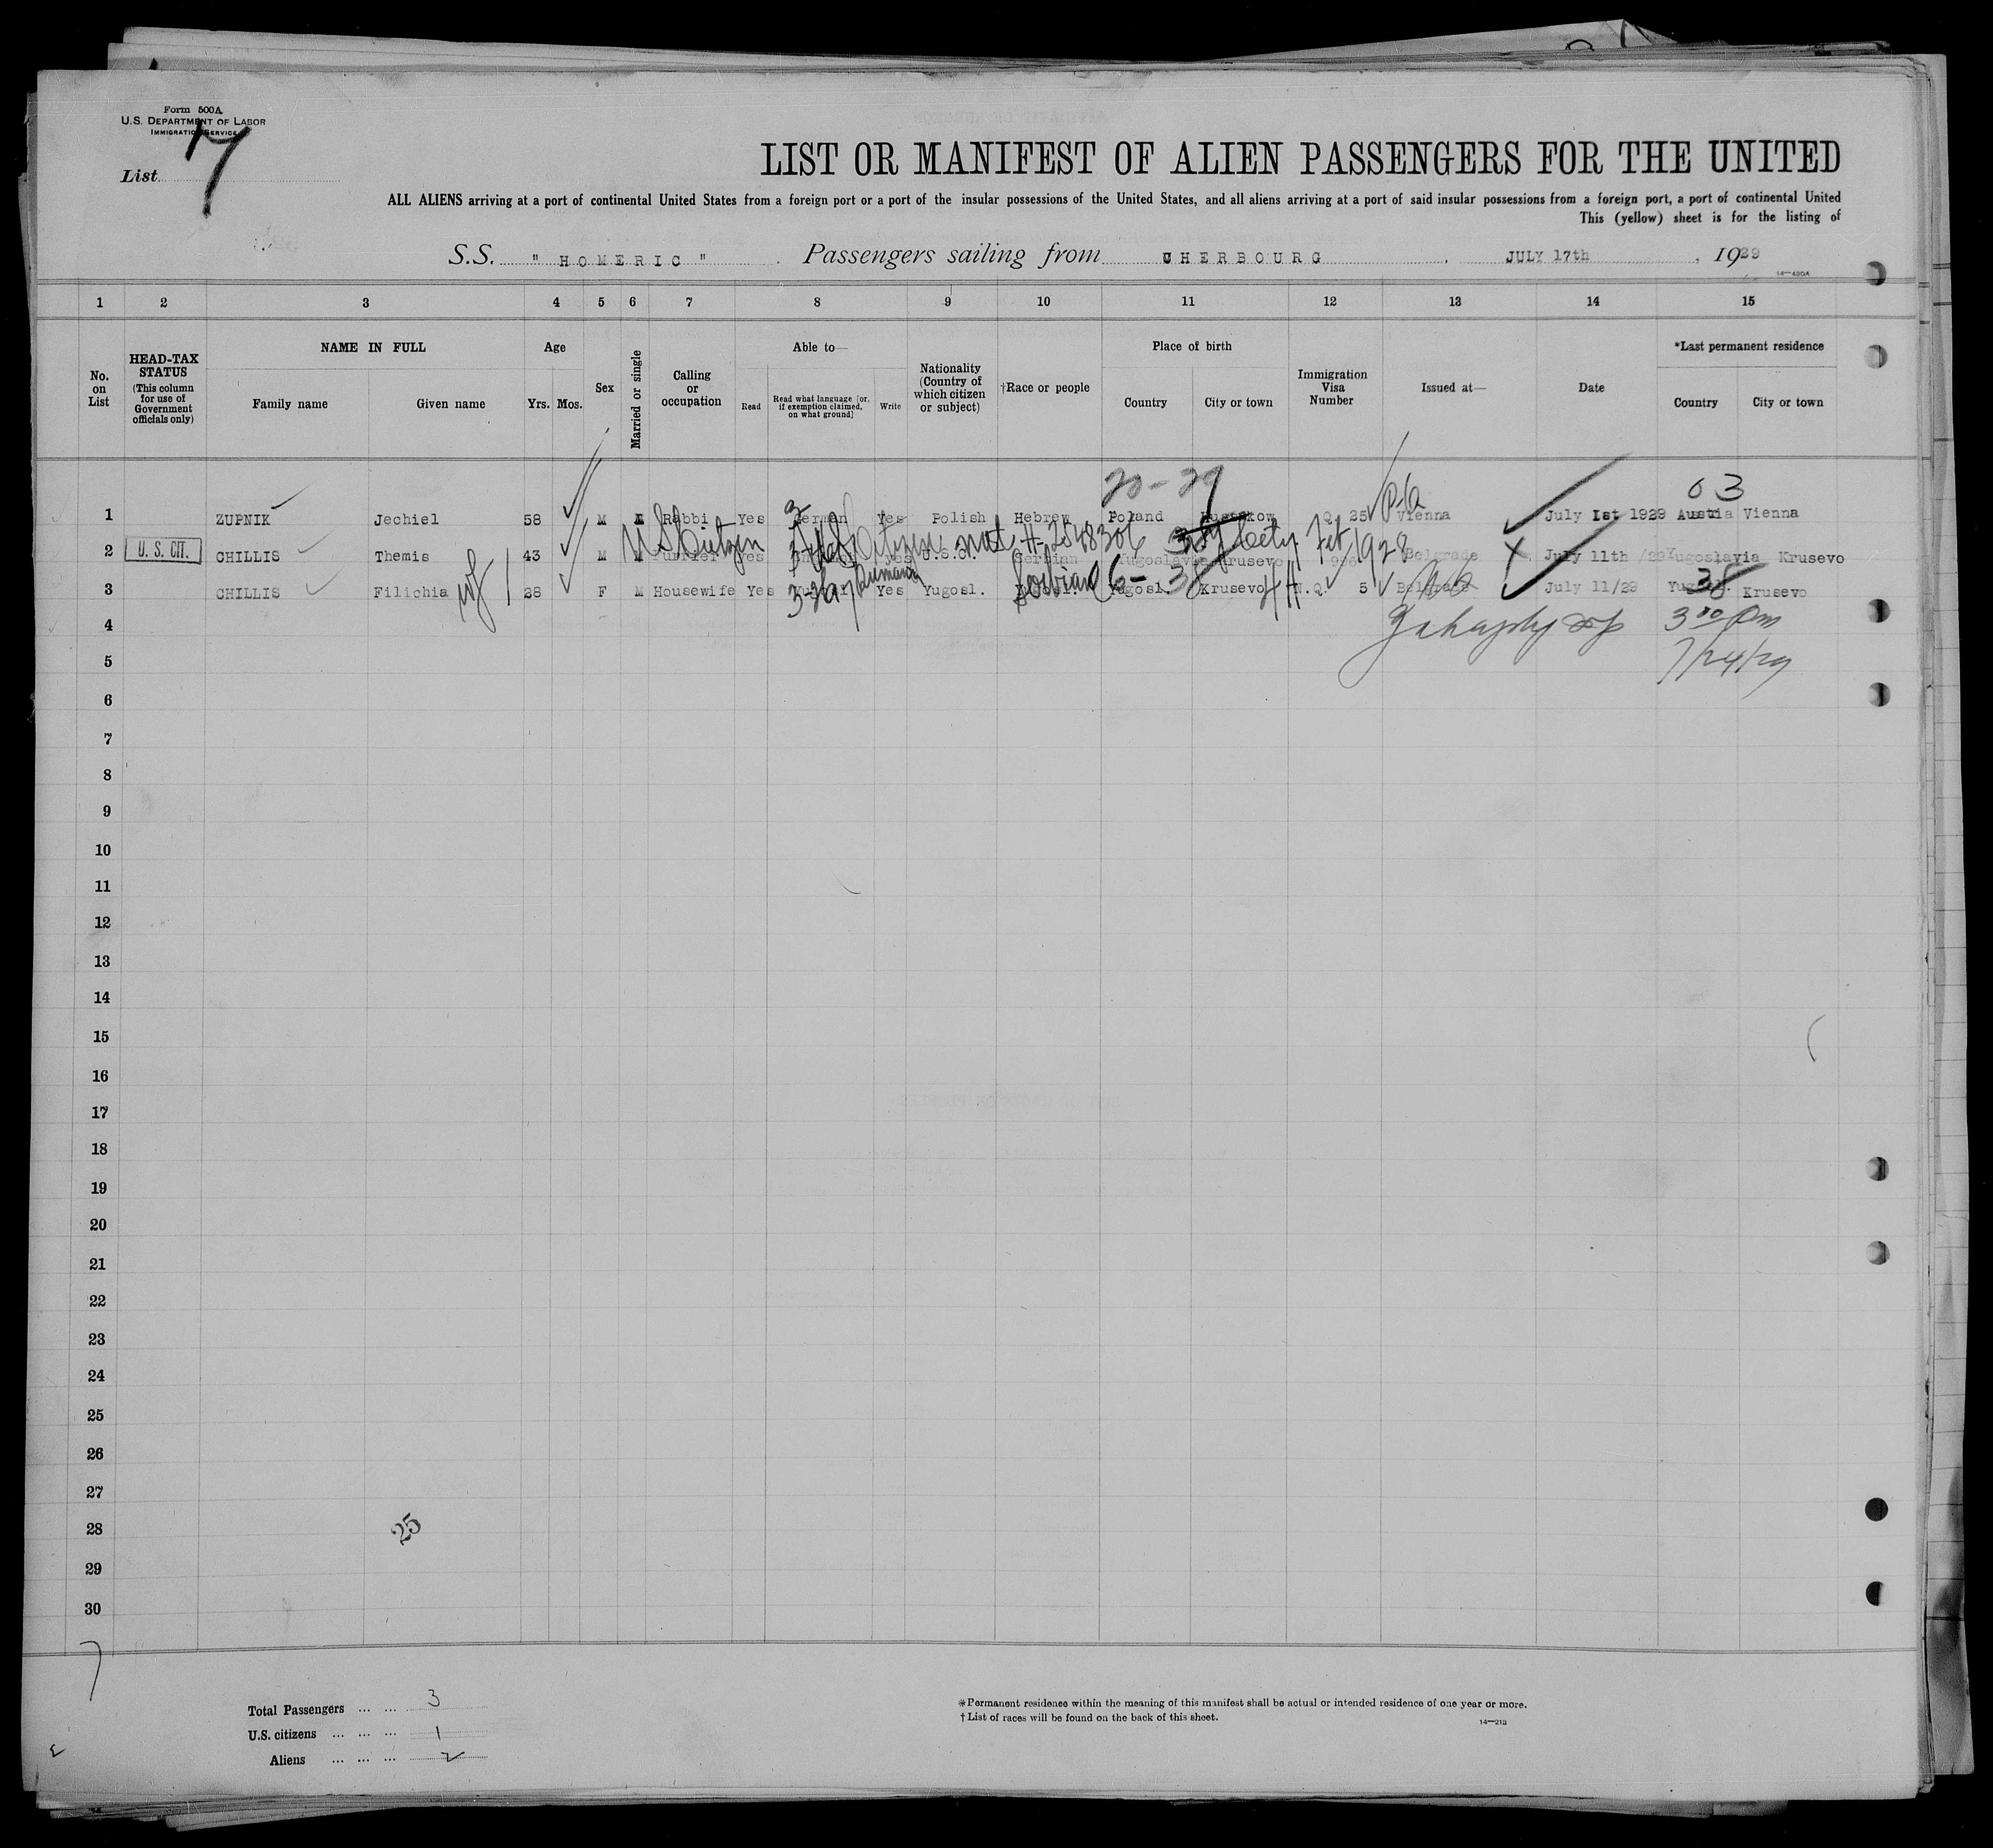 Form 500A
U.S. DEPARTMENT OF LABOR
IMMIGRATION SERVICE
List 7
LIST OR MANIFEST OF ALIEN PASSENGERS FOR THE UNITED
ALL ALIENS arriving at a port of continental United States from a foreign port or a port of the insular possessions of the United States, and all aliens arriving at a port of said insular possessions from a foreign port, a port of continental United
This (yellow) sheet is for the listing of
S.S. " HOMERIC " Passengers sailing from CHERBOURG , JULY 17th , 1929
14—430A
1 2 3 4 5 6 7 8 9 10 11 12 13 14 15
No. on List
HEAD-TAX STATUS
(This column for use of Government officials only)
NAME IN FULL
Family name Given name
Age
Yrs. Mos.
Sex
Married or single
Calling or occupation
Able to—
Read
Read what language [or, if exemption claimed, on what ground]
Write
Nationality (Country of which citizen or subject)
†Race or people
Place of birth
Country City or town
Immigration Visa Number
Issued at—
Date
*Last permanent residence
Country City or town
20-29 03
1 ZUPNIK Jechiel 58 M Rabbi Yes German Yes Polish Hebrew Poland Q 25 Vienna July 1st 1929 Austria Vienna
US Citizen H-2548306 Feb 1928
2 U. S. CIT. CHILLIS Themis 43 M M Furrier Yes Yes U.S.C. Serbian Yugoslavia Krusevo Belgrade July 11th /29 Yugoslavia Krusevo
3 CHILLIS Filichia wf 28 F M Housewife Yes Rumanian Yes Yugosl. Serbian Yugosl. Krusevo N.Q. 5 Belgrade July 11/29 38 Krusevo
4 3 00 Pm
5 7/24/29
6
7
8
9
10
11
12
13
14
15
16
17
18
19
20
21
22
23
24
25
26
27
28 25
29
30
7
Total Passengers ... ... 3
U.S. citizens ... ... ... 1
Aliens ... ... ... 2
*Permanent residence within the meaning of this manifest shall be actual or intended residence of one year or more.
†List of races will be found on the back of this sheet.
14—213